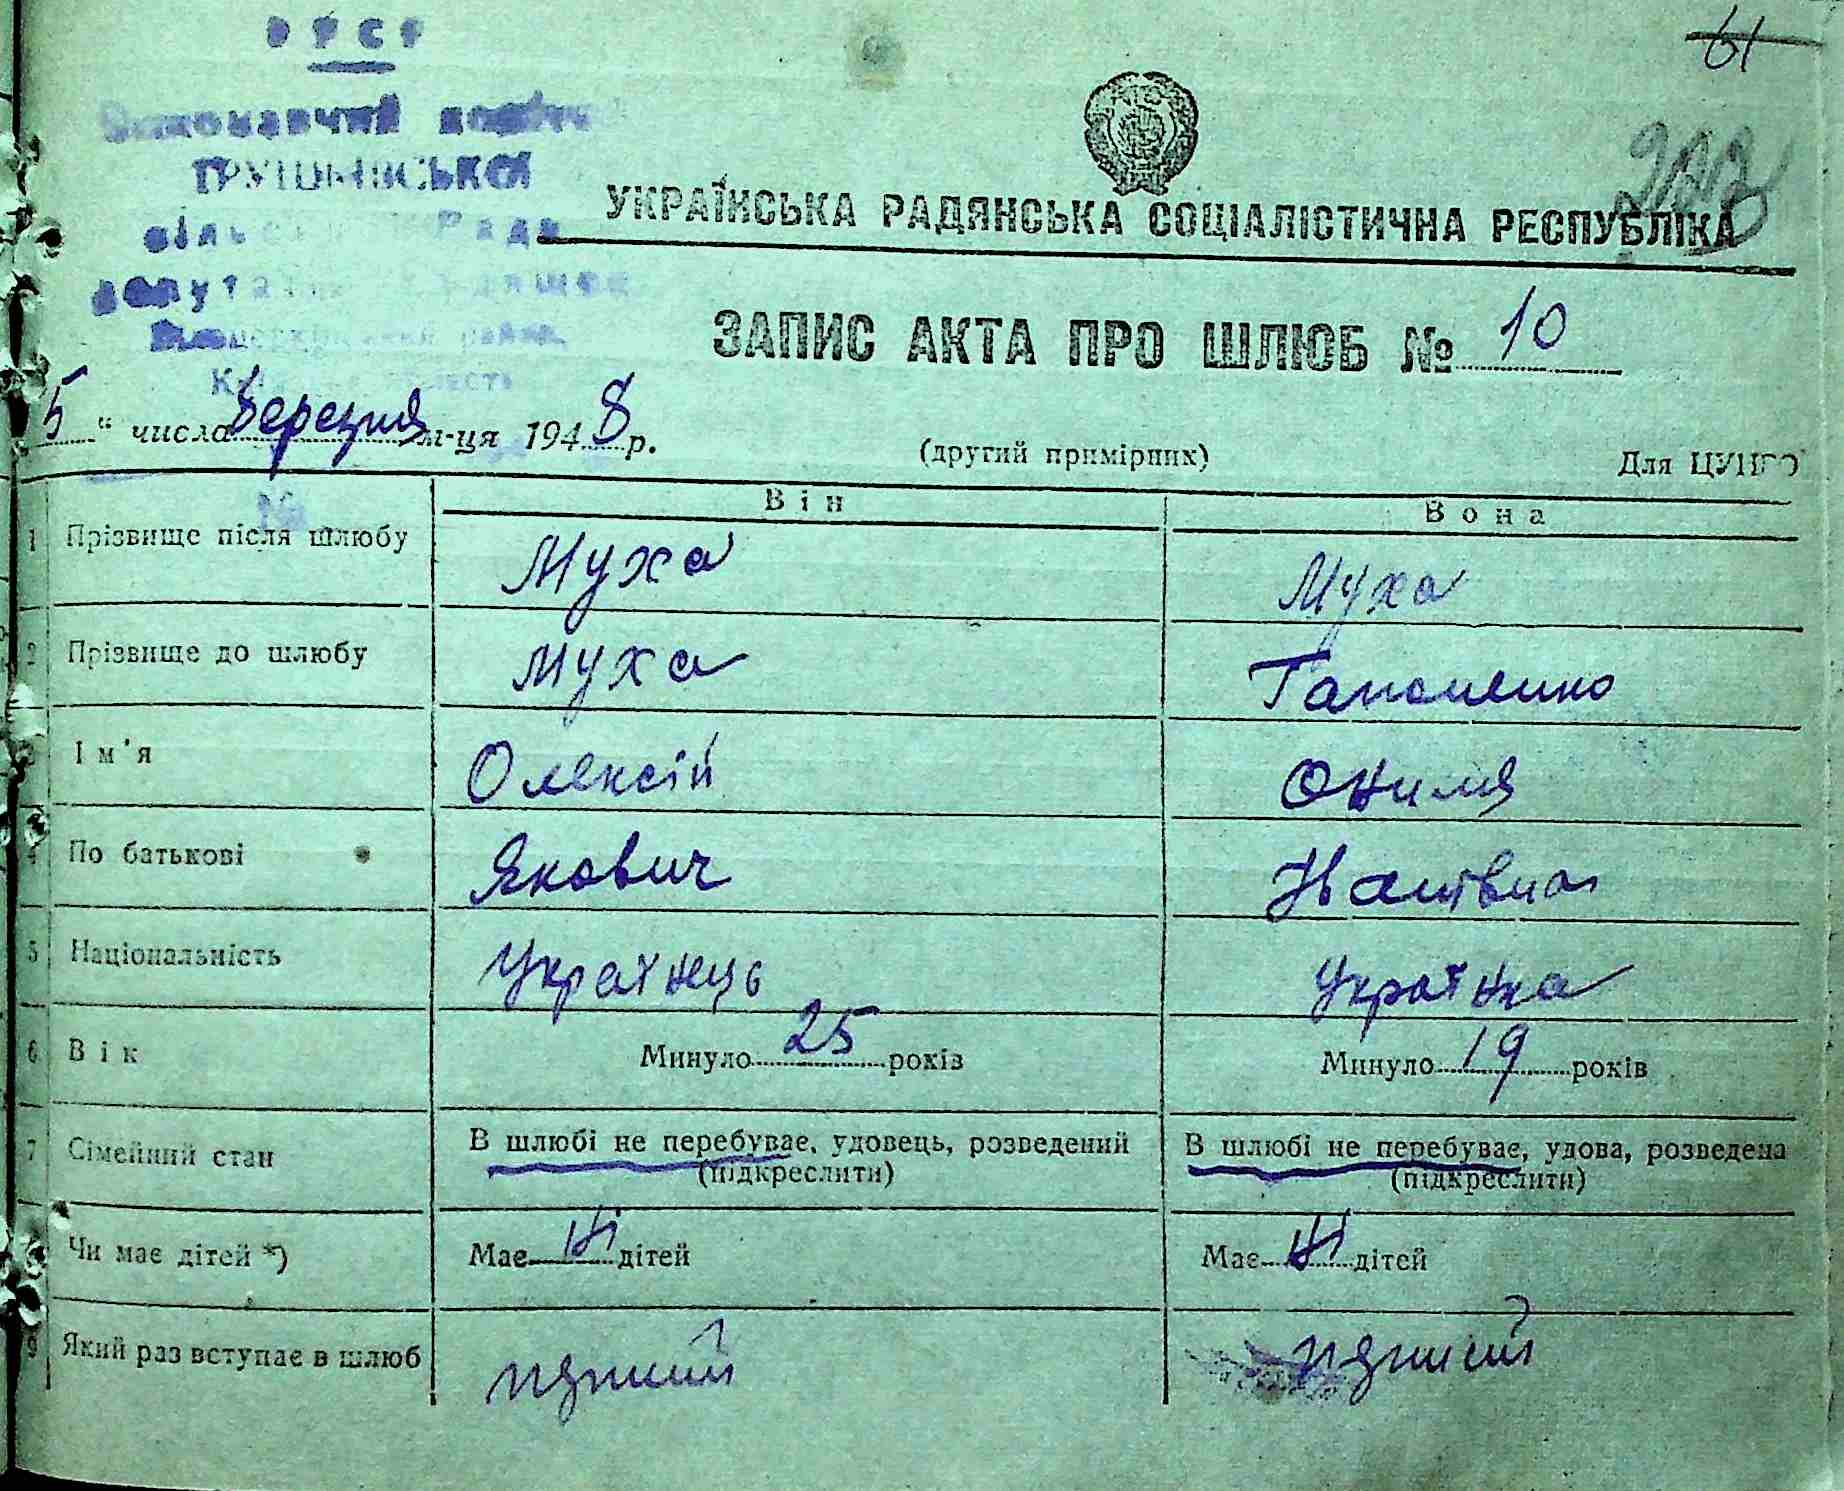 УРСР
61
Виконавчий комітет
ГРУШІВСЬКОЇ
сільської Ради
депутатів трудящих
УКРАЇНСЬКА РАДЯНСЬКА СОЦІАЛІСТИЧНА РЕСПУБЛІКА
ЗАПИС АКТА ПРО ШЛЮБ № 10
5 " числа березня м-ця 1948 р.
(другий примірник)
Для ЦУНГО
№
Він
Вона
1 Прізвище після шлюбу Муха Муха
2 Прізвище до шлюбу Муха Гапоненко
3 Ім'я Олексій
4 По батькові Якович
5 Національність Українець Українка
6 Вік Минуло 25 років Минуло 19 років
7 Сімейний стан В шлюбі не перебуває, удовець, розведений В шлюбі не перебуває, удова, розведена
(підкреслити) (підкреслити)
Чи має дітей *) Має ні дітей Має ні дітей
9 Який раз вступає в шлюб